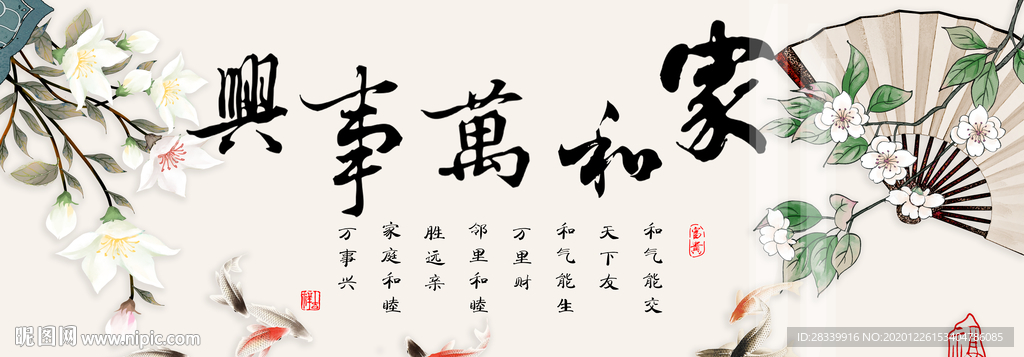 家和萬事興
和气能交
天下友
和气能生
万里财
邻里和睦
胜远亲
家庭和睦
万事兴
昵图网 www.nipic.com
ID:28339916 NO:20201226153404786085